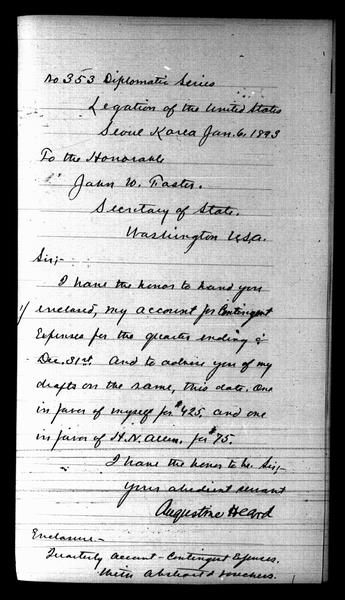 No 353 Diplomatic Series
Legation of the United States
Seoul Korea Jan. 6. 1893
To the Honorable
John W. Foster.
Secretary of State.
Washington U.S.A.
Sir;-
I have the honor to hand you
1/ enclosed, my account for Contingent
Expenses for the quarter ending
Dec. 31st. And to advise you of my
drafts on the same, this date. One
in favor of myself for $425. and one
in favor of H. N. Allen. for $75.
I have the honor to be Sir;-
Your obedient servant
Augustine Heard
Enclosure-
Quarterly Account - Contingent Expenses.
With abstract & vouchers.